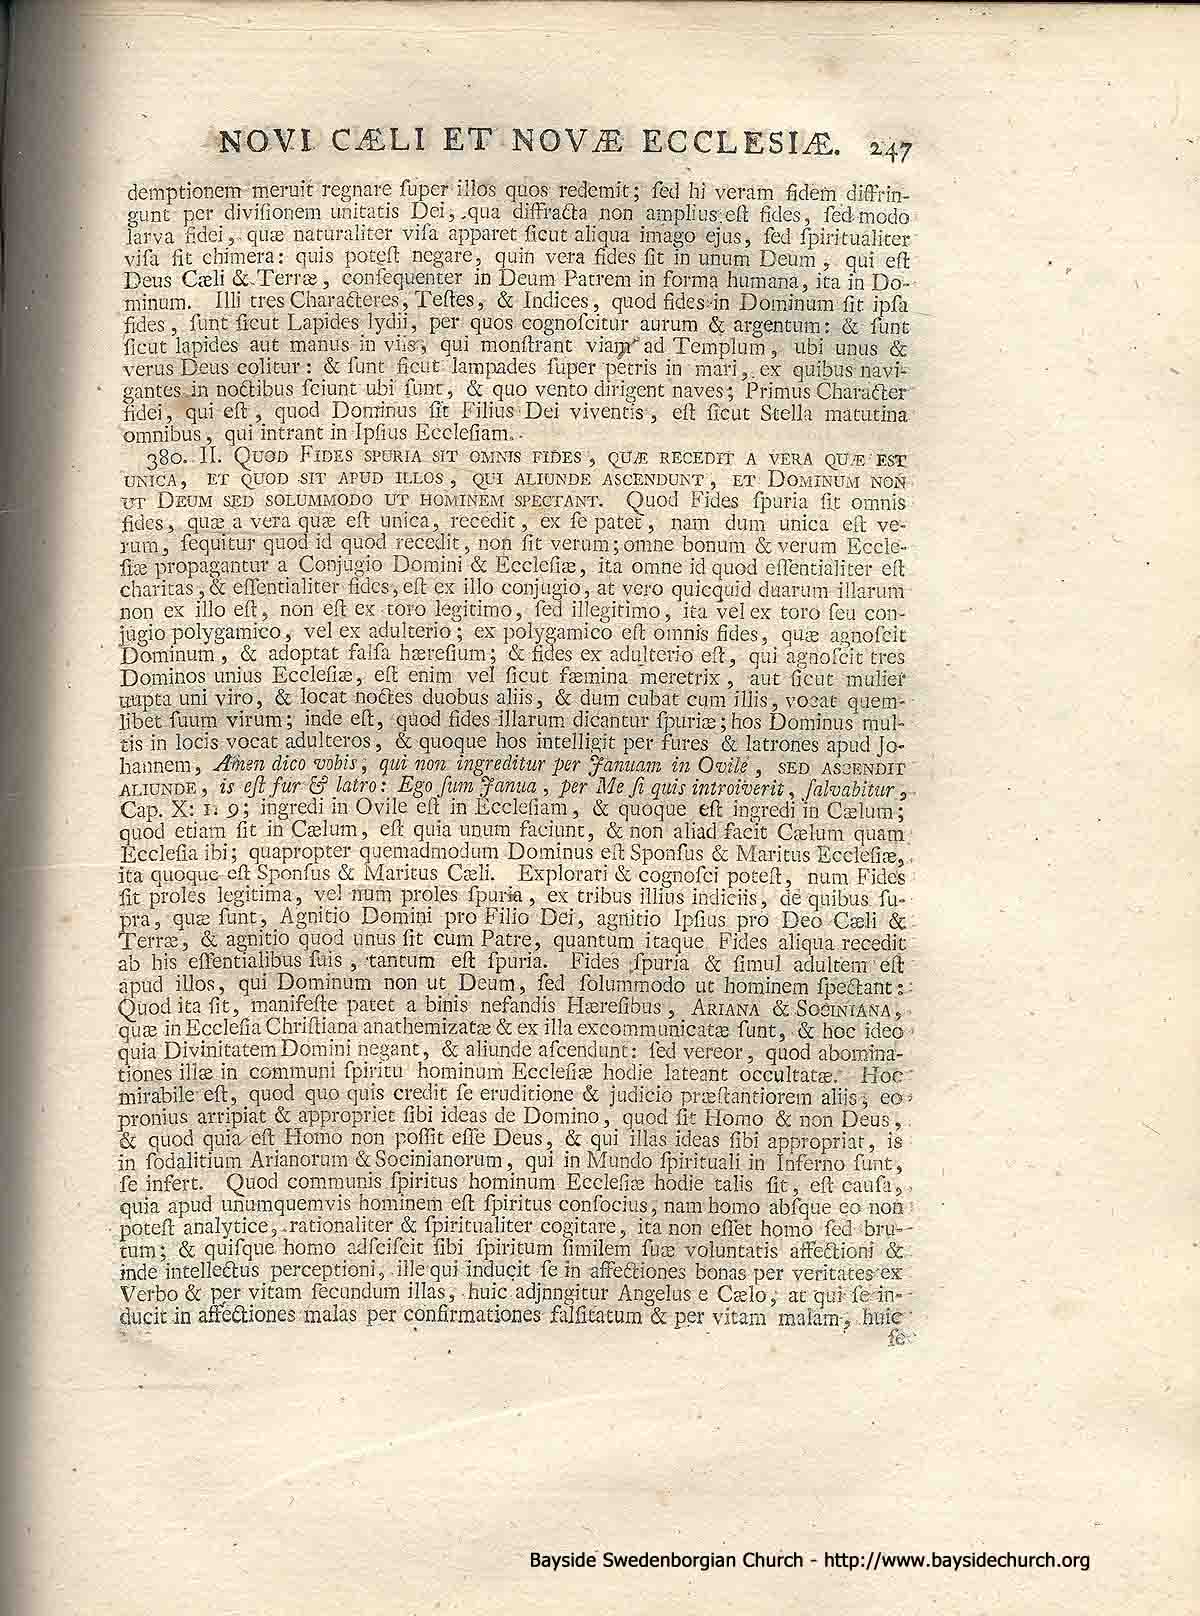 NOVI CÆLI ET NOVÆ ECCLESIÆ. 247
demptionem meruit regnare ſuper illos quos redemit; ſed hi veram fidem diffrin-
gunt per diviſionem unitatis Dei, qua diffracta non amplius eſt fides, ſed modo
larva fidei, quæ naturaliter viſa apparet ſicut aliqua imago ejus, ſed ſpiritualiter
viſa fit chimera: quis poteſt negare, quin vera fides ſit in unum Deum, qui eſt
Deus Cæli & Terræ, conſequenter in Deum Patrem in forma humana, ita in Do-
minum. Illi tres Characteres, Teſtes, & Indices, quod fides in Dominum ſit ipſa
fides, ſunt ſicut Lapides lydii, per quos cognoſcitur aurum & argentum: & ſunt
ſicut lapides aut manus in viis, qui monſtrant viam ad Templum, ubi unus &
verus Deus colitur: & ſunt ſicut lampades ſuper petris in mari, ex quibus navi-
gantes in noctibus ſciunt ubi ſunt, & quo vento dirigent naves; Primus Character
fidei, qui eſt, quod Dominus ſit Filius Dei viventis, eſt ſicut Stella matutina
omnibus, qui intrant in Ipſius Eccleſiam.
380. II. QUOD FIDES SPURIA SIT OMNIS FIDES, QUÆ RECEDIT A VERA QUÆ EST
UNICA, ET QUOD SIT APUD ILLOS, QUI ALIUNDE ASCENDUNT, ET DOMINUM NON
UT DEUM SED SOLUMMODO UT HOMINEM SPECTANT. Quod Fides ſpuria ſit omnis
fides, quæ a vera quæ eſt unica, recedit, ex ſe patet, nam dum unica eſt ve-
rum, ſequitur quod id quod recedit, non ſit verum; omne bonum & verum Eccle-
ſiæ propagantur a Conjugio Domini & Eccleſiæ, ita omne id quod eſſentialiter eſt
charitas, & eſſentialiter fides, eſt ex illo conjugio, at vero quicquid duarum illarum
non ex illo eſt, non eſt ex toro legitimo, ſed illegitimo, ita vel ex toro ſeu con-
jugio polygamico, vel ex adulterio; ex polygamico eſt omnis fides, quæ agnoſcit
Dominum, & adoptat falſa hæreſium; & fides ex adulterio eſt, qui agnoſcit tres
Dominos unius Eccleſiæ, eſt enim vel ſicut fæmina meretrix, aut ſicut mulier
nupta uni viro, & locat noctes duobus aliis, & dum cubat cum illis, vocat quem-
libet ſuum virum; inde eſt, quod fides illarum dicantur ſpuriæ; hos Dominus mul-
tis in locis vocat adulteros, & quoque hos intelligit per fures & latrones apud Jo-
hannem, Amen dico vobis, qui non ingreditur per Januam in Ovile, SED ASCENDIT
ALIUNDE, is eſt fur & latro: Ego ſum Janua, per Me ſi quis introiverit, ſalvabitur,
Cap. X: 1. 9; ingredi in Ovile eſt in Eccleſiam, & quoque eſt ingredi in Cælum;
quod etiam ſit in Cælum, eſt quia unum faciunt, & non aliad facit Cælum quam
Eccleſia ibi; quapropter quemadmodum Dominus eſt Sponſus & Maritus Eccleſiæ,
ita quoque eſt Sponſus & Maritus Cæli. Explorari & cognoſci poteſt, num Fides
ſit proles legitima, vel num proles ſpuria, ex tribus illius indiciis, de quibus ſu-
pra, quæ ſunt, Agnitio Domini pro Filio Dei, agnitio Ipſius pro Deo Cæli &
Terræ, & agnitio quod unus ſit cum Patre, quantum itaque Fides aliqua recedit
ab his eſſentialibus ſuis, tantum eſt ſpuria. Fides ſpuria & ſimul adultem eſt
apud illos, qui Dominum non ut Deum, ſed ſolummodo ut hominem ſpectant:
Quod ita ſit, manifeſte patet a binis nefandis Hæreſibus, ARIANA & SOCINIANA,
quæ in Eccleſia Chriſtiana anathemizatæ & ex illa excommunicatæ ſunt, & hoc ideo
quia Divinitatem Domini negant, & aliunde aſcendunt: ſed vereor, quod abomina-
tiones illæ in communi ſpiritu hominum Eccleſiæ hodie lateant occultatæ. Hoc
mirabile eſt, quod quo quis credit ſe eruditione & judicio præſtantiorem aliis, eo
pronius arripiat & appropriet ſibi ideas de Domino, quod ſit Homo & non Deus,
& quod quia eſt Homo non poſſit eſſe Deus, & qui illas ideas ſibi appropriat, is
in ſodalitium Arianorum & Socinianorum, qui in Mundo ſpirituali in Inferno ſunt,
ſe infert. Quod communis ſpiritus hominum Eccleſiæ hodie talis ſit, eſt cauſa,
quia apud unumquemvis hominem eſt ſpiritus conſocius, nam homo abſque eo non
poteſt analytice, rationaliter & ſpiritualiter cogitare, ita non eſſet homo ſed bru-
tum; & quiſque homo adſciſcit ſibi ſpiritum ſimilem ſuæ voluntatis affectioni &
inde intellectus perceptioni, ille qui inducit ſe in affectiones bonas per veritates ex
Verbo & per vitam ſecundum illas, huic adjnngitur Angelus e Cælo, at qui ſe in-
ducit in affectiones malas per confirmationes falſitatum & per vitam malam, huic
ſe
Bayside Swedenborgian Church - http://www.baysidechurch.org